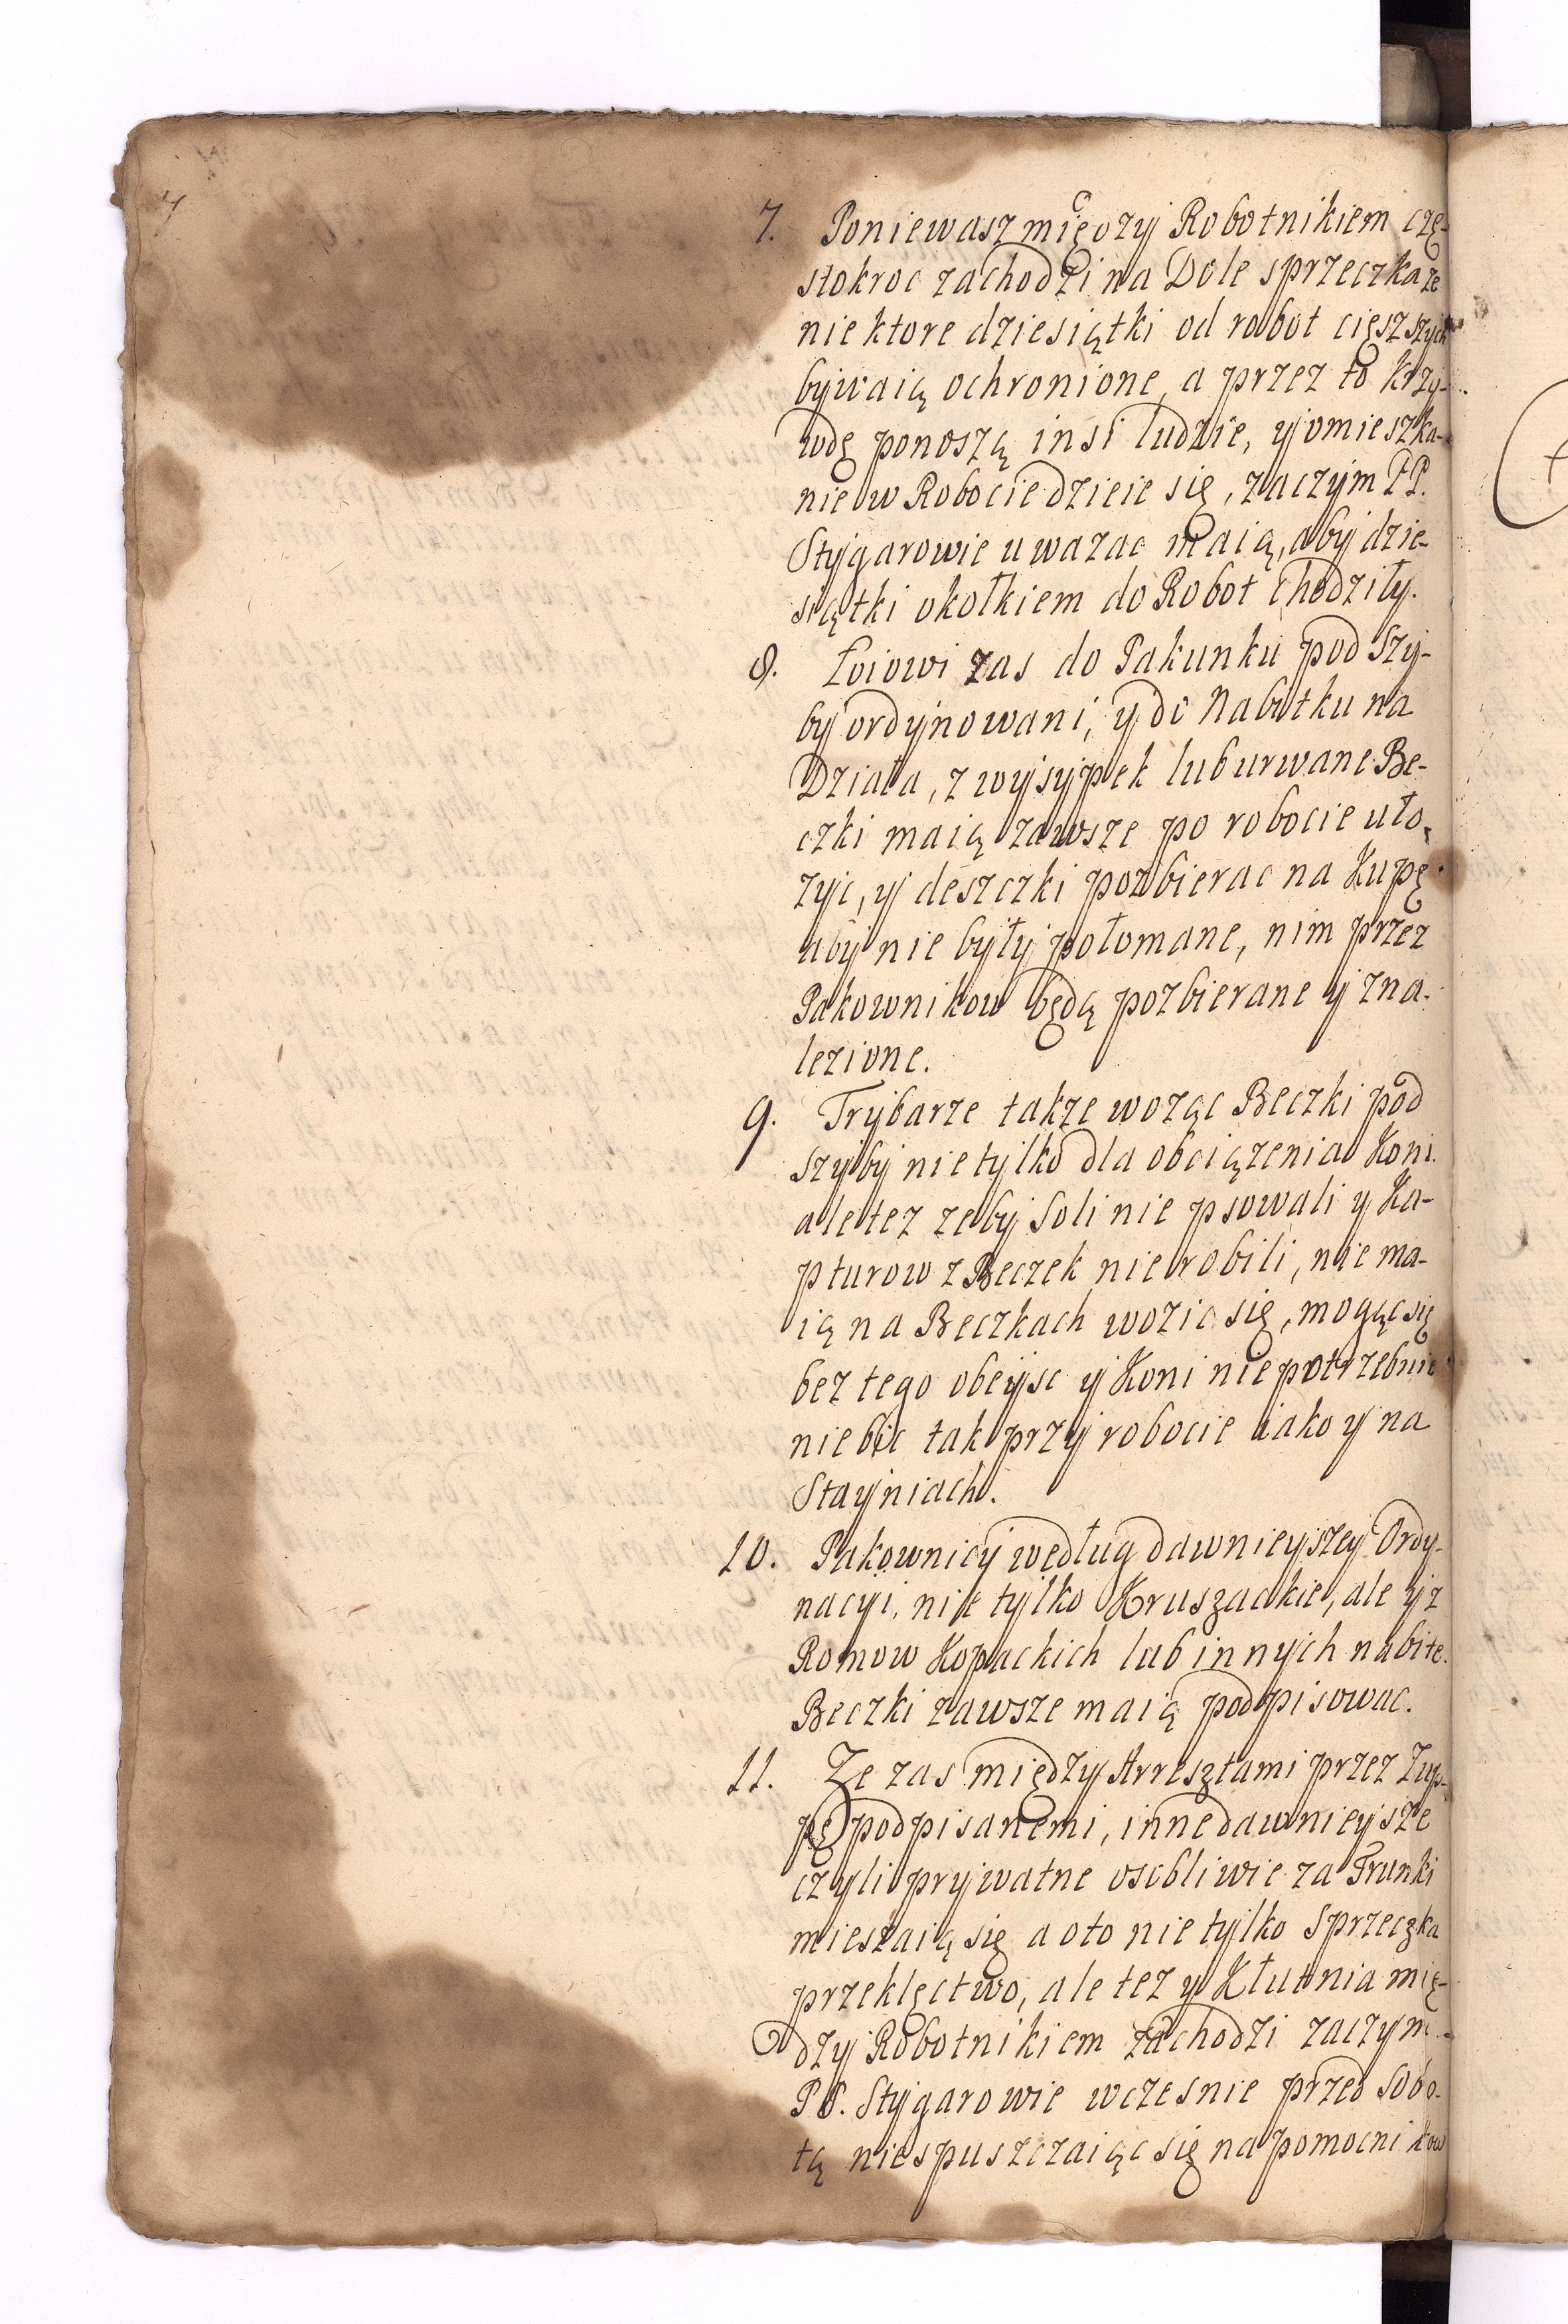 7. Poniewasz między Robotnikiem czę-
stokroc zachodzi na Dole sprzeczka ze
niektore dziesiątki od robot cięszszych
bywaią ochronione, a przez to krzy-
wdę ponoszą insi ludzie, y omieszka-
nie w Robocie dzieie się, zaczym PP.
Stygarowie uwazac maią, aby dzie-
siątki okołkiem do Robot chodziły.
8. Łoiowi zas do Pakunku pod Szy-
by ordynowani, y do Nabitku na
Działa, z wysypek lub urwane Be-
czki maią zawsze po robocie uło-
zyc, y deszczki pozbierac na Kupę
aby nie były połomane, nim przez
Pakownikow będą pozbierane y zna-
lezione.
9. Trybarze takze wozęc Beczki pod
szyby nie tylko dla obciązenia Koni
ale tez zeby Soli nie psowali y Ka-
pturow z Beczek nie robili, nie ma-
ią na Beczkach wozic się, mogęc się
bez tego obeysc y Koni niepotrzebnie
nie bic tak przy robocie iako y na
Stayniach.
10. Pakownicy według dawnieyszey Ordy-
nacyi, nie tylko Kruszackie, ale y z
Romow Kopackich lub innych nabite
Beczki zawsze maią podpisowac.
11. Ze zas między Arresztami przez Zup-
pę podpisanemi, inne dawnieysze
czyli prywatne osobliwie za Trunki
mieszaią się a oto nie tylko Sprzeczka
przeklęctwo, ale tez y Kłutnia mię-
dzy Robotnikiem zachodzi zaczym
PP. Stygarowie wczesnie przed Sobo-
tą niespuszczaięc się na pomocnikow